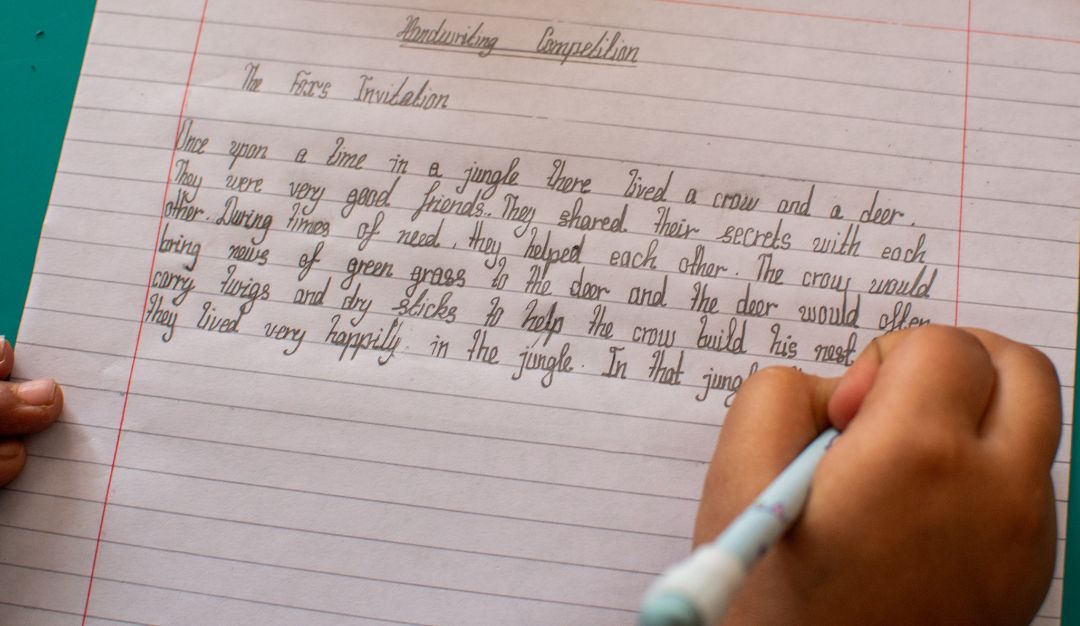 Handwriting Competition
The Fox's Invitation
Once upon a time in a jungle there lived a crow and a deer.
They were very good friends. They shared their secrets with each
other. During times of need, they helped each other. The crow would
bring news of green grass to the deer and the deer would often
carry twigs and dry sticks to help the crow build his nest
they lived very happily. in the jungle. In that